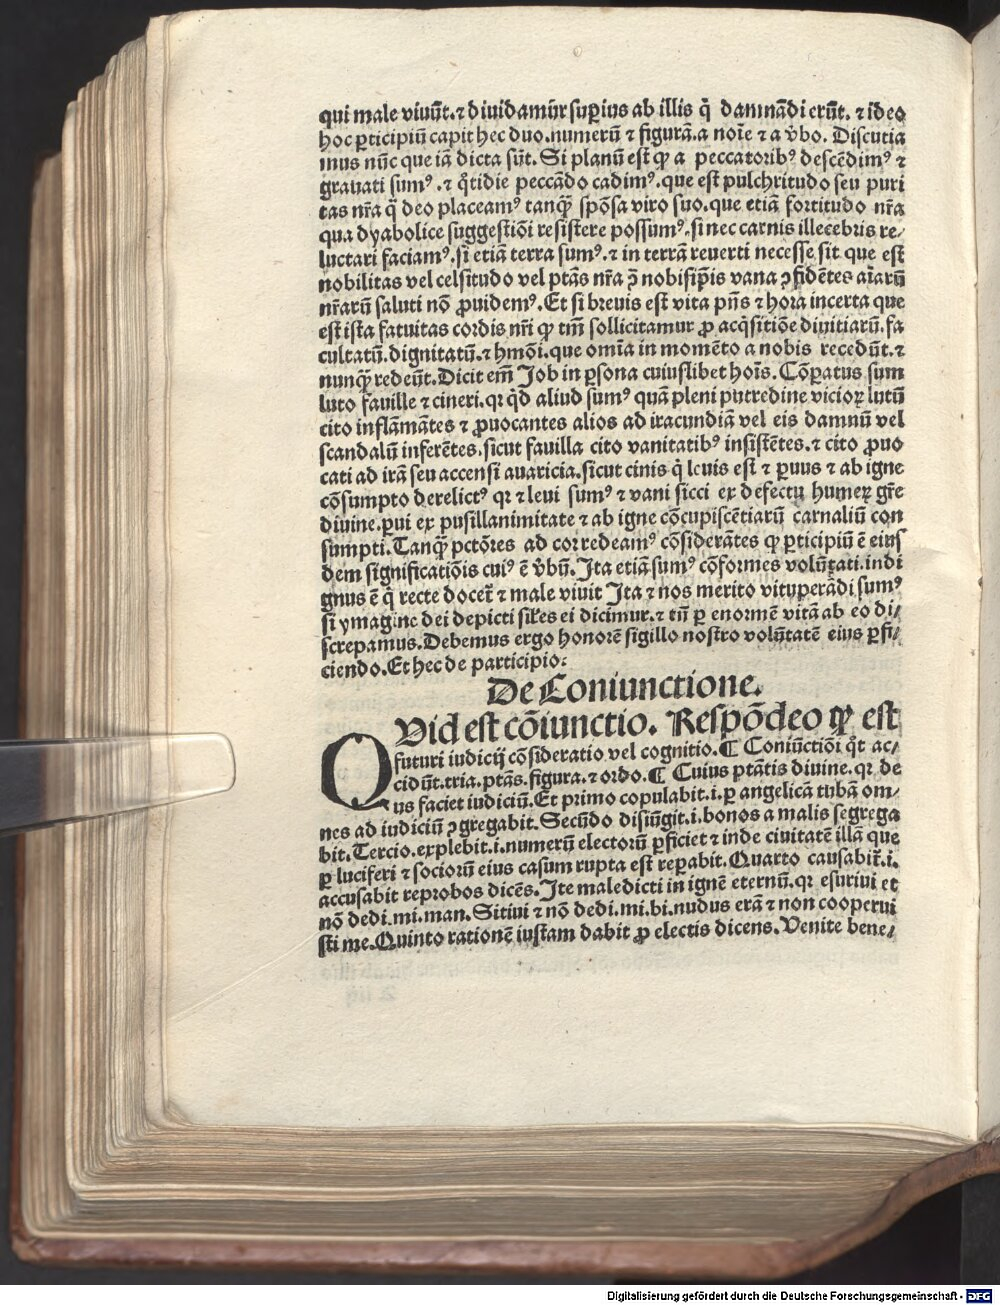 qui male viuūt.⁊ diuidamūr suꝑius ab illis q̄ damnādi erūt. ⁊ ideo
hoc ꝑticipiū capit hec duo.numerū ⁊ figurā.a noīe ⁊ a v̄bo. Discutia
mus nūc que iā dicta sūt. Si planū est ꝙ a peccatorib⁹ descēdim⁹ ⁊
grauati sum⁹ .⁊ q̊tidie peccādo cadim⁹.que est pulchritudo seu puri
tas nr̄a q̄ deo placeam⁹ tanqꝫ̄ spōsa viro suo.que etiā fortitudo nr̄a
qua dyabolice suggestiōi resistere possum⁹.si nec carnis illecebris re⸗
luctari faciam⁹.si etiā terra sum⁹.⁊ in terrā reuerti necesse sit que est
nobilitas vel celsitudo vel ptās nr̄a ꝫ̄ nobisip̄is vana ꝯfidētes aīarū
nr̄arū saluti nō ꝓuidem⁹.Et si breuis est vita pn̄s ⁊ hora incerta que
est ista fatuitas cordis nr̄i ꝙ tm̄ sollicitamur ꝓ acq̇sitiōe diuitiarū.fa
cultatū.dignitatū.⁊ hmōi.que omīa in momēto a nobis recedūt.⁊
nunqꝫ̄ redeūt.Dicit em̄ Job in ꝑsona cuiuslibet hoīs. Cōꝑatus sum
luto fauille ⁊ cineri.qꝛ q̇d aliud sum⁹ quā pleni putredine vicioꝝ lutū
cito inflāmātes ⁊ ꝓuocantes alios ad iracundiā vel eis damnū vel
scandalū inferētes.sicut fauilla cito vanitatib⁹ insistētes.⁊ cito ꝓuo
cati ad irā seu accensi auaricia.sicut cinis q̄ leuis est ⁊ ꝑuus ⁊ ab igne
cōsumpto derelict⁹ qꝛ ⁊ leui sum⁹ ⁊ vani sicci ex defectu humeꝝ gr̄e
diuine.ꝑui ex pusillanimitate ⁊ ab igne cōcupiscētiarū carnaliū con
sumpti.Tanqꝫ̄ pctōres ad cor redeam⁹ cōsiderātes ꝙ ꝑticipiū ē eius
dem significatiōis cui⁹ ē v̄bū.Ita etiā sum⁹ cōformes volūtati.indi
gnus ē q̄ recte docet̄ ⁊ male viuit Ita ⁊ nos merito vituperādi sum⁹
si ymagine dei depicti sil̄es ei dicimur.⁊ tn̄ ꝑ enormē vitā ab eo di⸗
screpamus.Debemus ergo honorē sigillo nostro volūtatē eius ꝑfi⸗
ciendo.Et hec de participio:
De Coniunctione.
QVid est cōiunctio. Respōdeo ꝙ est
futuri iudicij cōsideratio vel cognitio.¶ Coniūctiōi q̊t ac⸗
cidūt.tria.ptās.figura.⁊ ordo.¶ Cuius ptātis diuine.qꝛ de
us faciet iudiciū.Et primo copulabit.i.ꝑ angelicā tubā om⸗
nes ad iudiciū ꝯgregabit.Secūdo disiūgit.i.bonos a malis segrega
bit.Tercio.explebit.i.numerū electorū ꝑficiet ⁊ inde ciuitatē illā que
ꝑ luciferi ⁊ sociorū eius casum rupta est reꝑabit.Quarto causabit̄.i.
accusabit reprobos dicēs.Ite maledicti in ignē eternū.qꝛ esuriui et
nō dedi.mi.man.Sitiui ⁊ nō dedi.mi.bi.nudus erā ⁊ non cooperui
sti me.Quinto rationē iustam dabit ꝓ electis dicens.Venite bene⸗
Digitalisierung gefördert durch die Deutsche Forschungsgemeinschaft - DFG